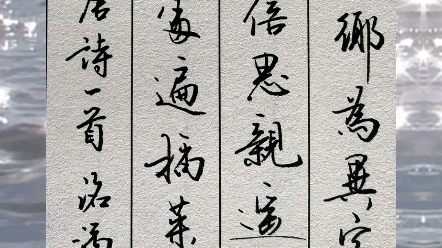 鄉為異客
倍思親遙
處遍插茱
唐詩一首